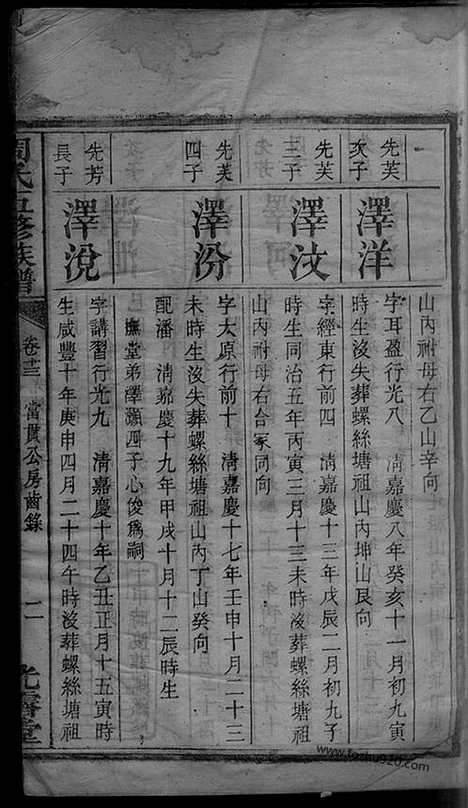 山內祔母右乙山辛向
先芙
次子
澤洋
字耳盈行光八 淸嘉慶八年癸亥十一月初九寅
時生沒失葬螺絲塘祖山內坤山艮向
先芙
三子
澤汶
字經東行前四 淸嘉慶十三年戊辰二月初九子
時生同治五年丙寅三月十三未時沒葬螺絲塘祖
山內祔母右合冢同向
先芙
四子
澤汾
字太原行前十 淸嘉慶十七年壬申十月二十三
未時生沒失葬螺絲塘祖山內丁山癸向
配潘 淸嘉慶十九年甲戌十月十二辰時生
撫堂弟澤灝四子心俊爲嗣
先芳
長子
澤浼
字講習行光九 淸嘉慶十年乙丑正月十五寅時
生咸豐十年庚申四月二十四午時沒葬螺絲塘祖
周氏五修族譜
卷十三
當貫公房齒錄
二
光霽堂
www.fozhu920.com